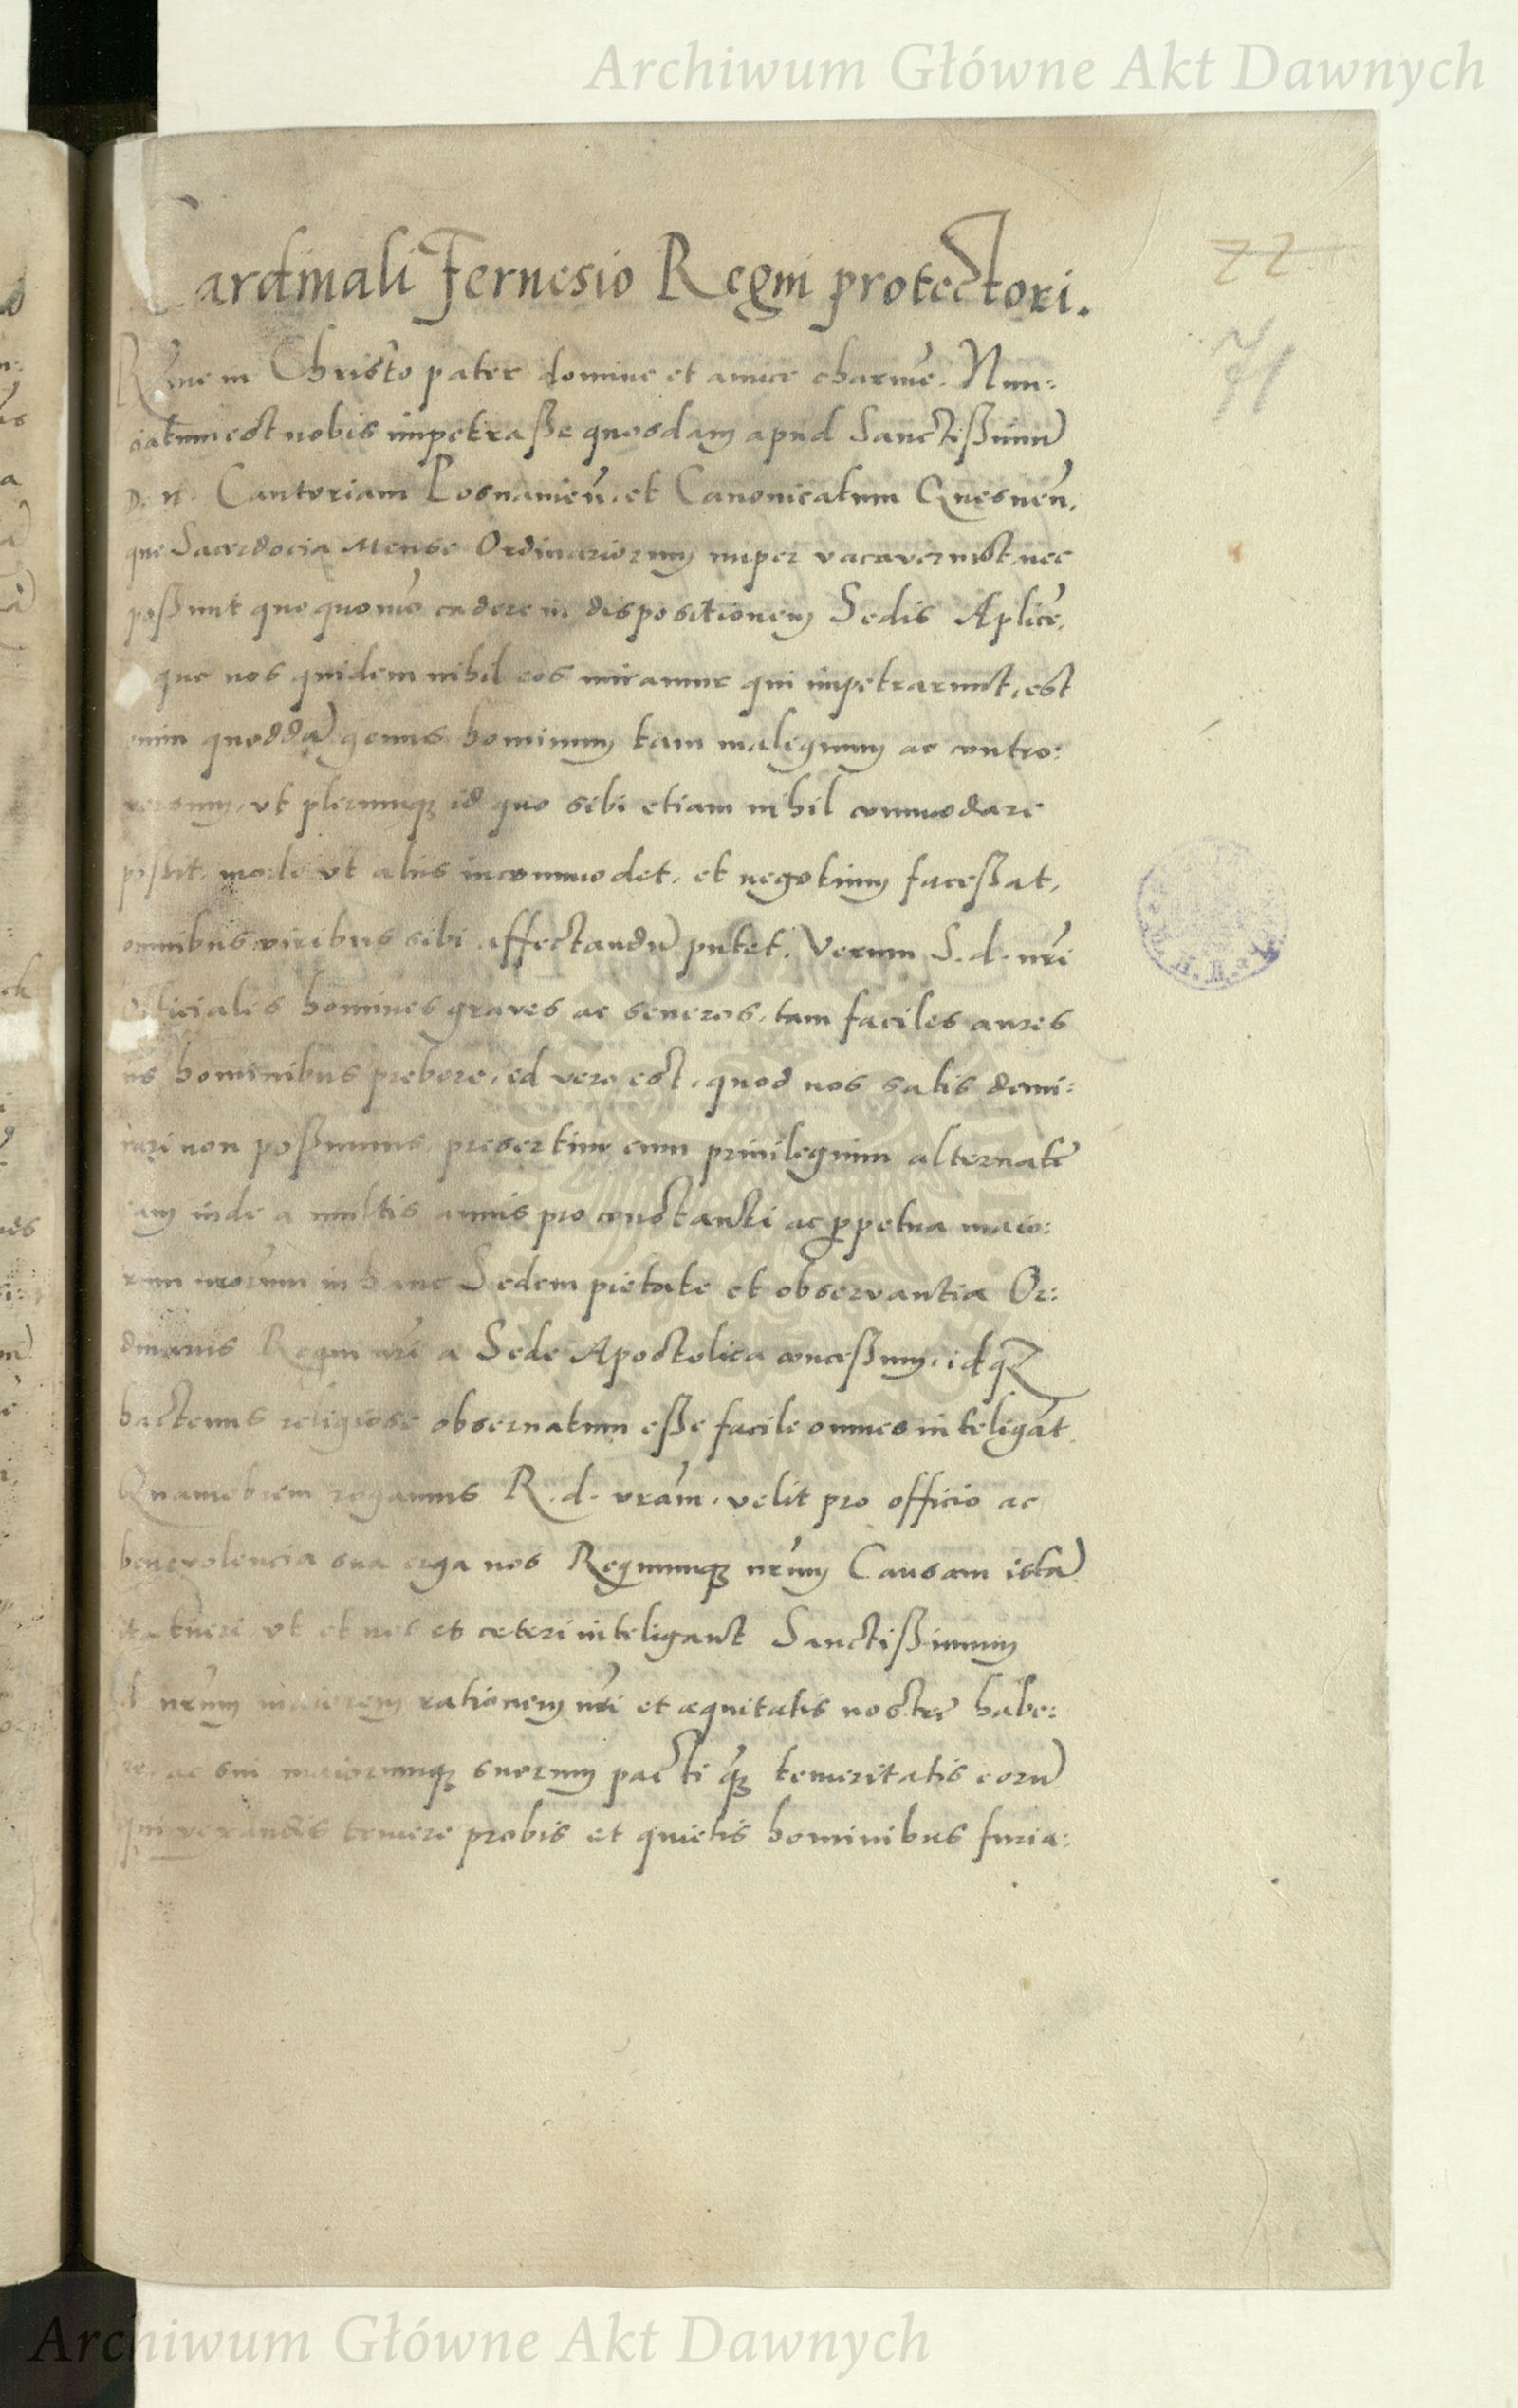 Archiwum Główne Akt Dawnych
Cardinali Fernesio Regni protectori.
72.
71
Rme in Christo pater domine et amice charme. Nun:
ciatum est nobis impetraße quosdam apud Sanctißimu
D. n. Cantoriam Posnanien. et Canonicatum Gnesnen.
que Sacerdocia Mense Ordinariorum nuper vacaverunt nec
poßunt quoquomo cadere in dispositionem Sedis Aplice.
que nos quidem nihil eos miramur qui impetrarunt, est
enim quodda genus hominum tam malignum ac contro:
versum, ut plerumq id quo sibi etiam nihil commodare
poßit, modo ut aliis incommodet, et negotium faceßat,
omnibus viribus sibi affectandu putet. Verum S. d. nri
officiales homines graves ac severos, tam faciles aures
iis hominibus prebere, id vero est, quod nos satis demi:
rari non poßumus presertim cum privilegium alternate
iam inde a multis annis pro constanti ac perpetua maio:
rum nrorum in hanc Sedem pietate et observantia Or:
dinariis Regni nri a Sede Apostolica conceßum, idq
hactenus religiose observatum eße facile omnes inteligat
Quamobrem rogamus R. d. vram, velit pro officio ac
benevolencia sua erga nos Regnumq nrum Causam ista
ita tueri ut et nos et ceteri inteligant Sanctißimum
d. nrum maiorem rationem nri et aequitatis nostre habe:
re, ac sui maiorumq suorum pacti q temeritatis eoru
qui vexandis temere probis et quietis hominibus furia:
Archiwum Główne Akt Dawnych